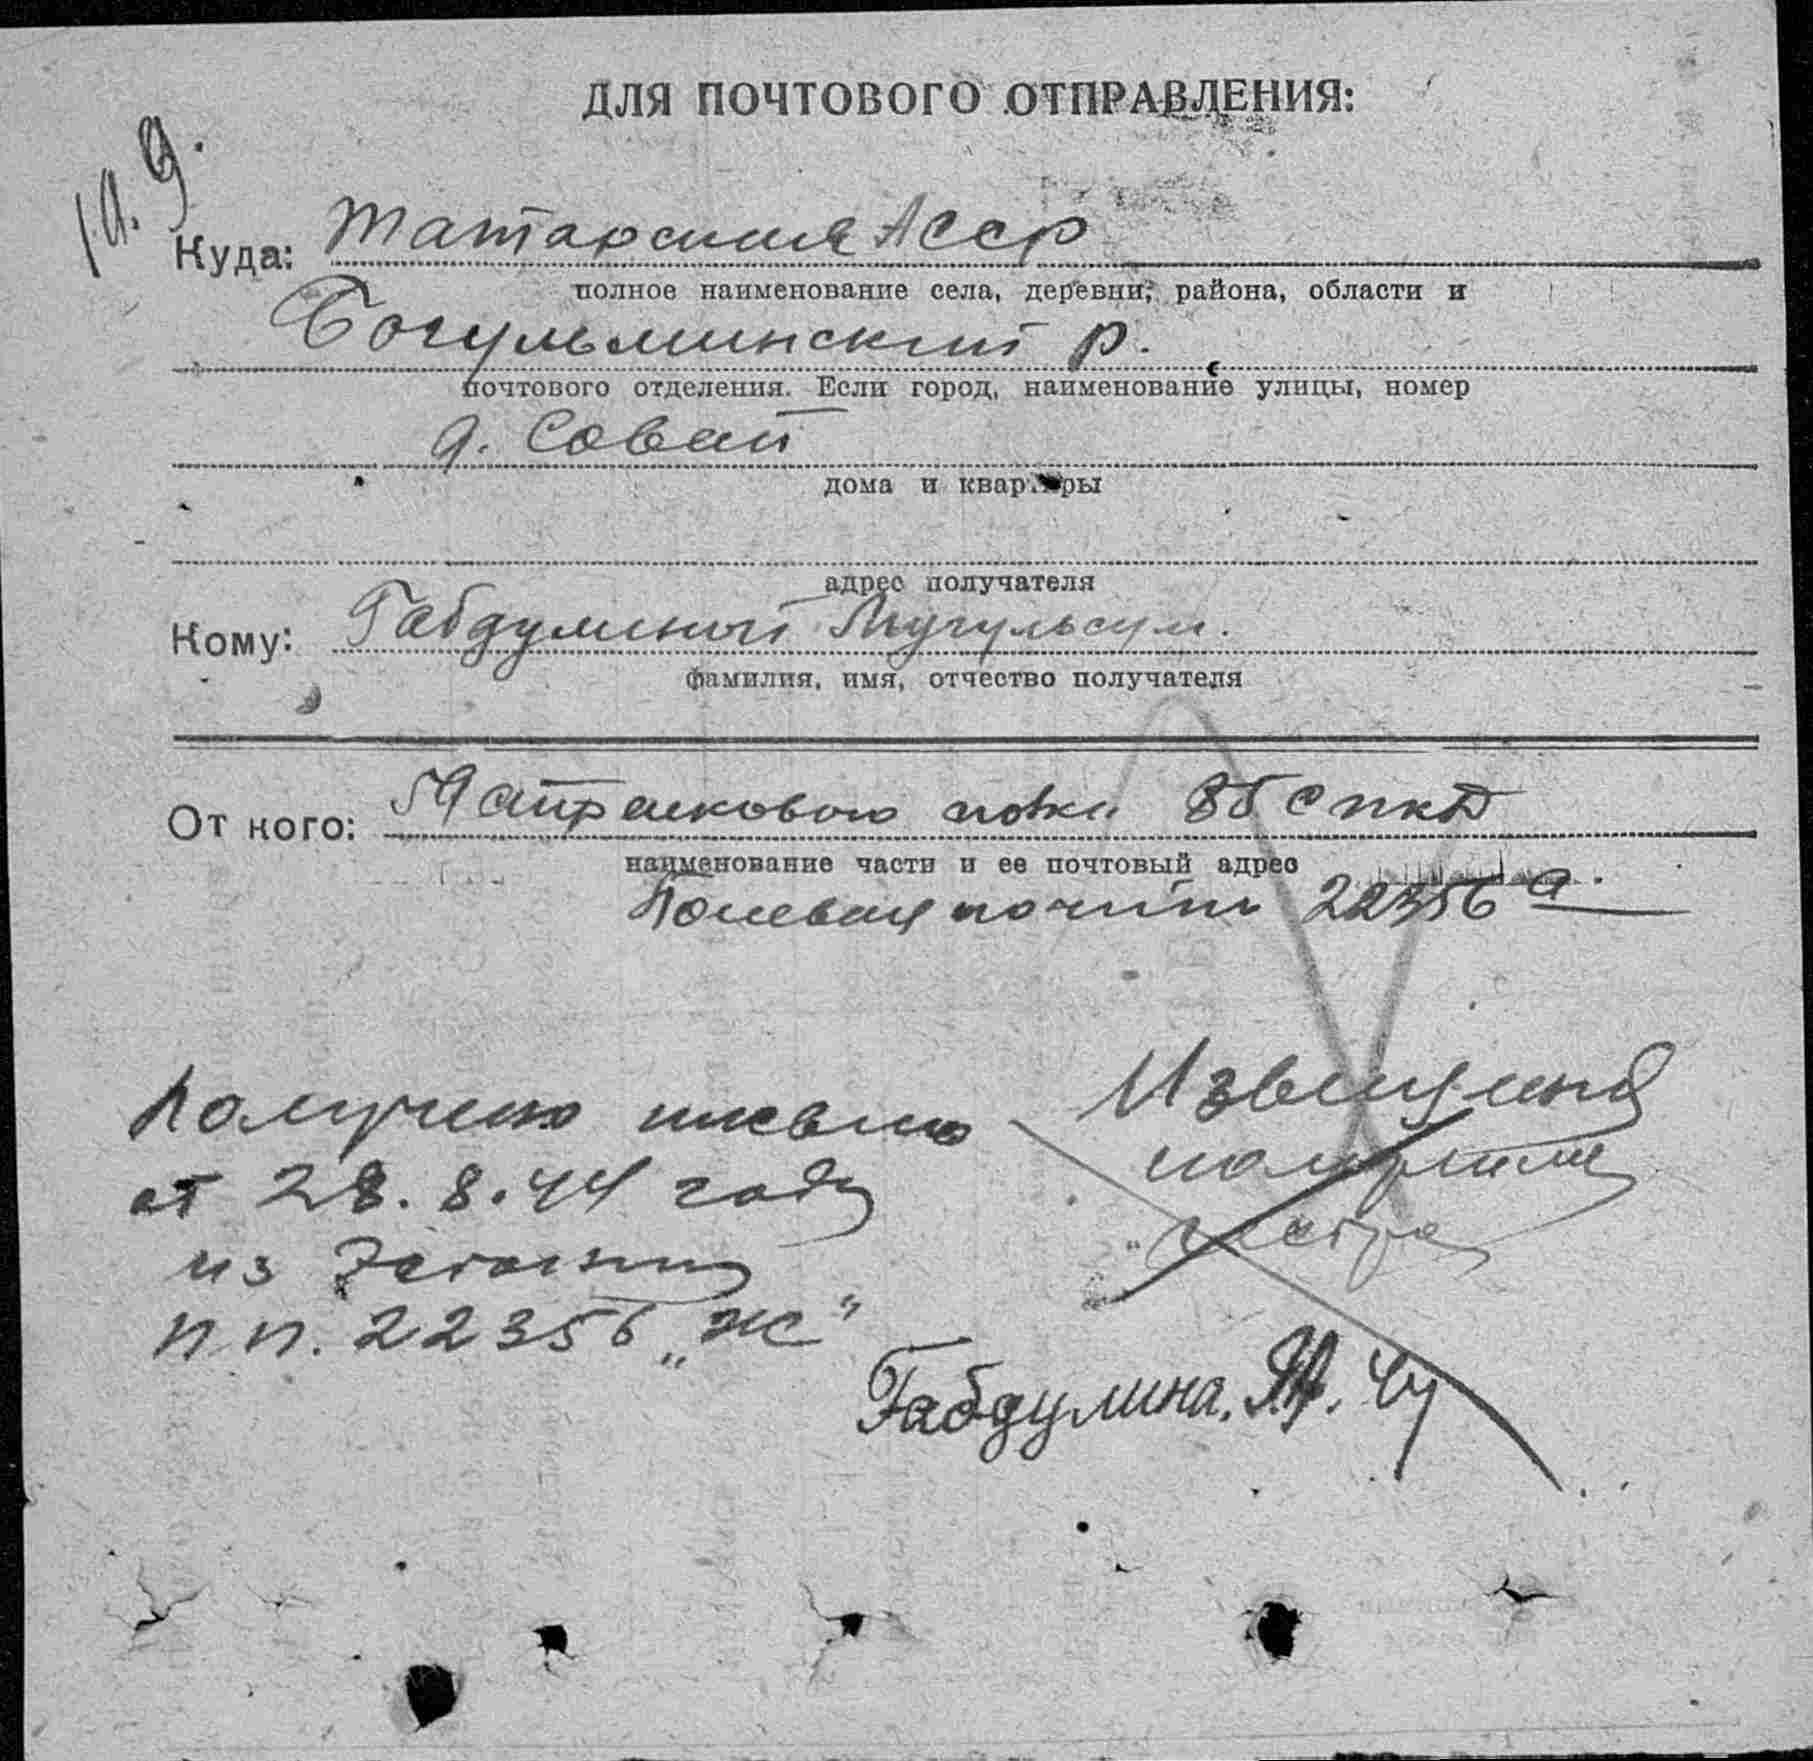 ДЛЯ ПОЧТОВОГО ОТПРАВЛЕНИЯ:
10. 9.
Куда: Татарская АССР
полное наименование села, деревни, района, области и
Богульминский р.
почтового отделения. Если город, наименование улицы, номер
д. Совай
дома и квартиры
адрес получателя
Кому: Габдулиной Мугульсум.
фамилия, имя, отчество получателя
От кого: 59 стрелкового полка 85 с
наименование части и ее почтовый адрес
Полевая почта 22356 а.
Получено письмо
от 28.8.44 году
из Эстонии
п п. 22356 „Ж"
Извещение
получила
сестра
Габдулина.